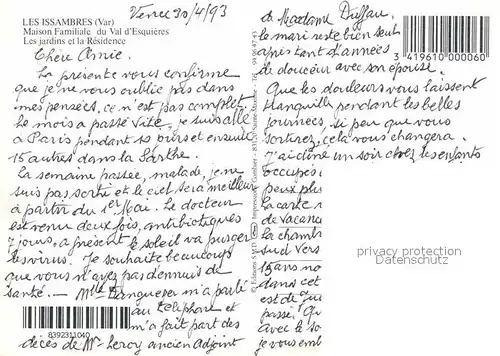 LES ISSAMBRES (Var)
Maison Familiale du Val d'Esquières
Les jardins et la Résidence
Vence 30/4/93
Chère Amie.
La présente vous confirme
que je ne vous oublie pas dans
mes pensées, ce n'est pas complet.
Le mois a passé vite. je suis allé
à Paris pendant 10 jours et ensuite
15 autres dans la Sarthe.
La semaine passée, malade, je ne
suis pas sorti et le ciel sera meilleur
à partir du 1er Mai. Le docteur
est venu deux fois, antibiotiques
7 jours, à présent le soleil va purger
les virus. Je souhaite beaucoup
que vous n'ayez pas d'ennuis de
santé. — Mlle m'a parlé
au téléphone et
m'a fait part des
décès de Mr Leroy ancien Adjoint
8392311040
de Madame Duffau.
le mari reste bien seul
après tant d'années
de douceur avec son épouse.
Que les douleurs vous laissent
tranquille pendant les belles
journées, si peu que vous
sortirez, cela vous changera.
J'ai dîné un soir chez les enfants
occupés
peux plus
la carte
de vacan
la chamb
sud Vers
15 ans
dans cet
est de
passé. Qu
avec le so
je vous em
3 419610 000060
privacy protection
Datenschutz